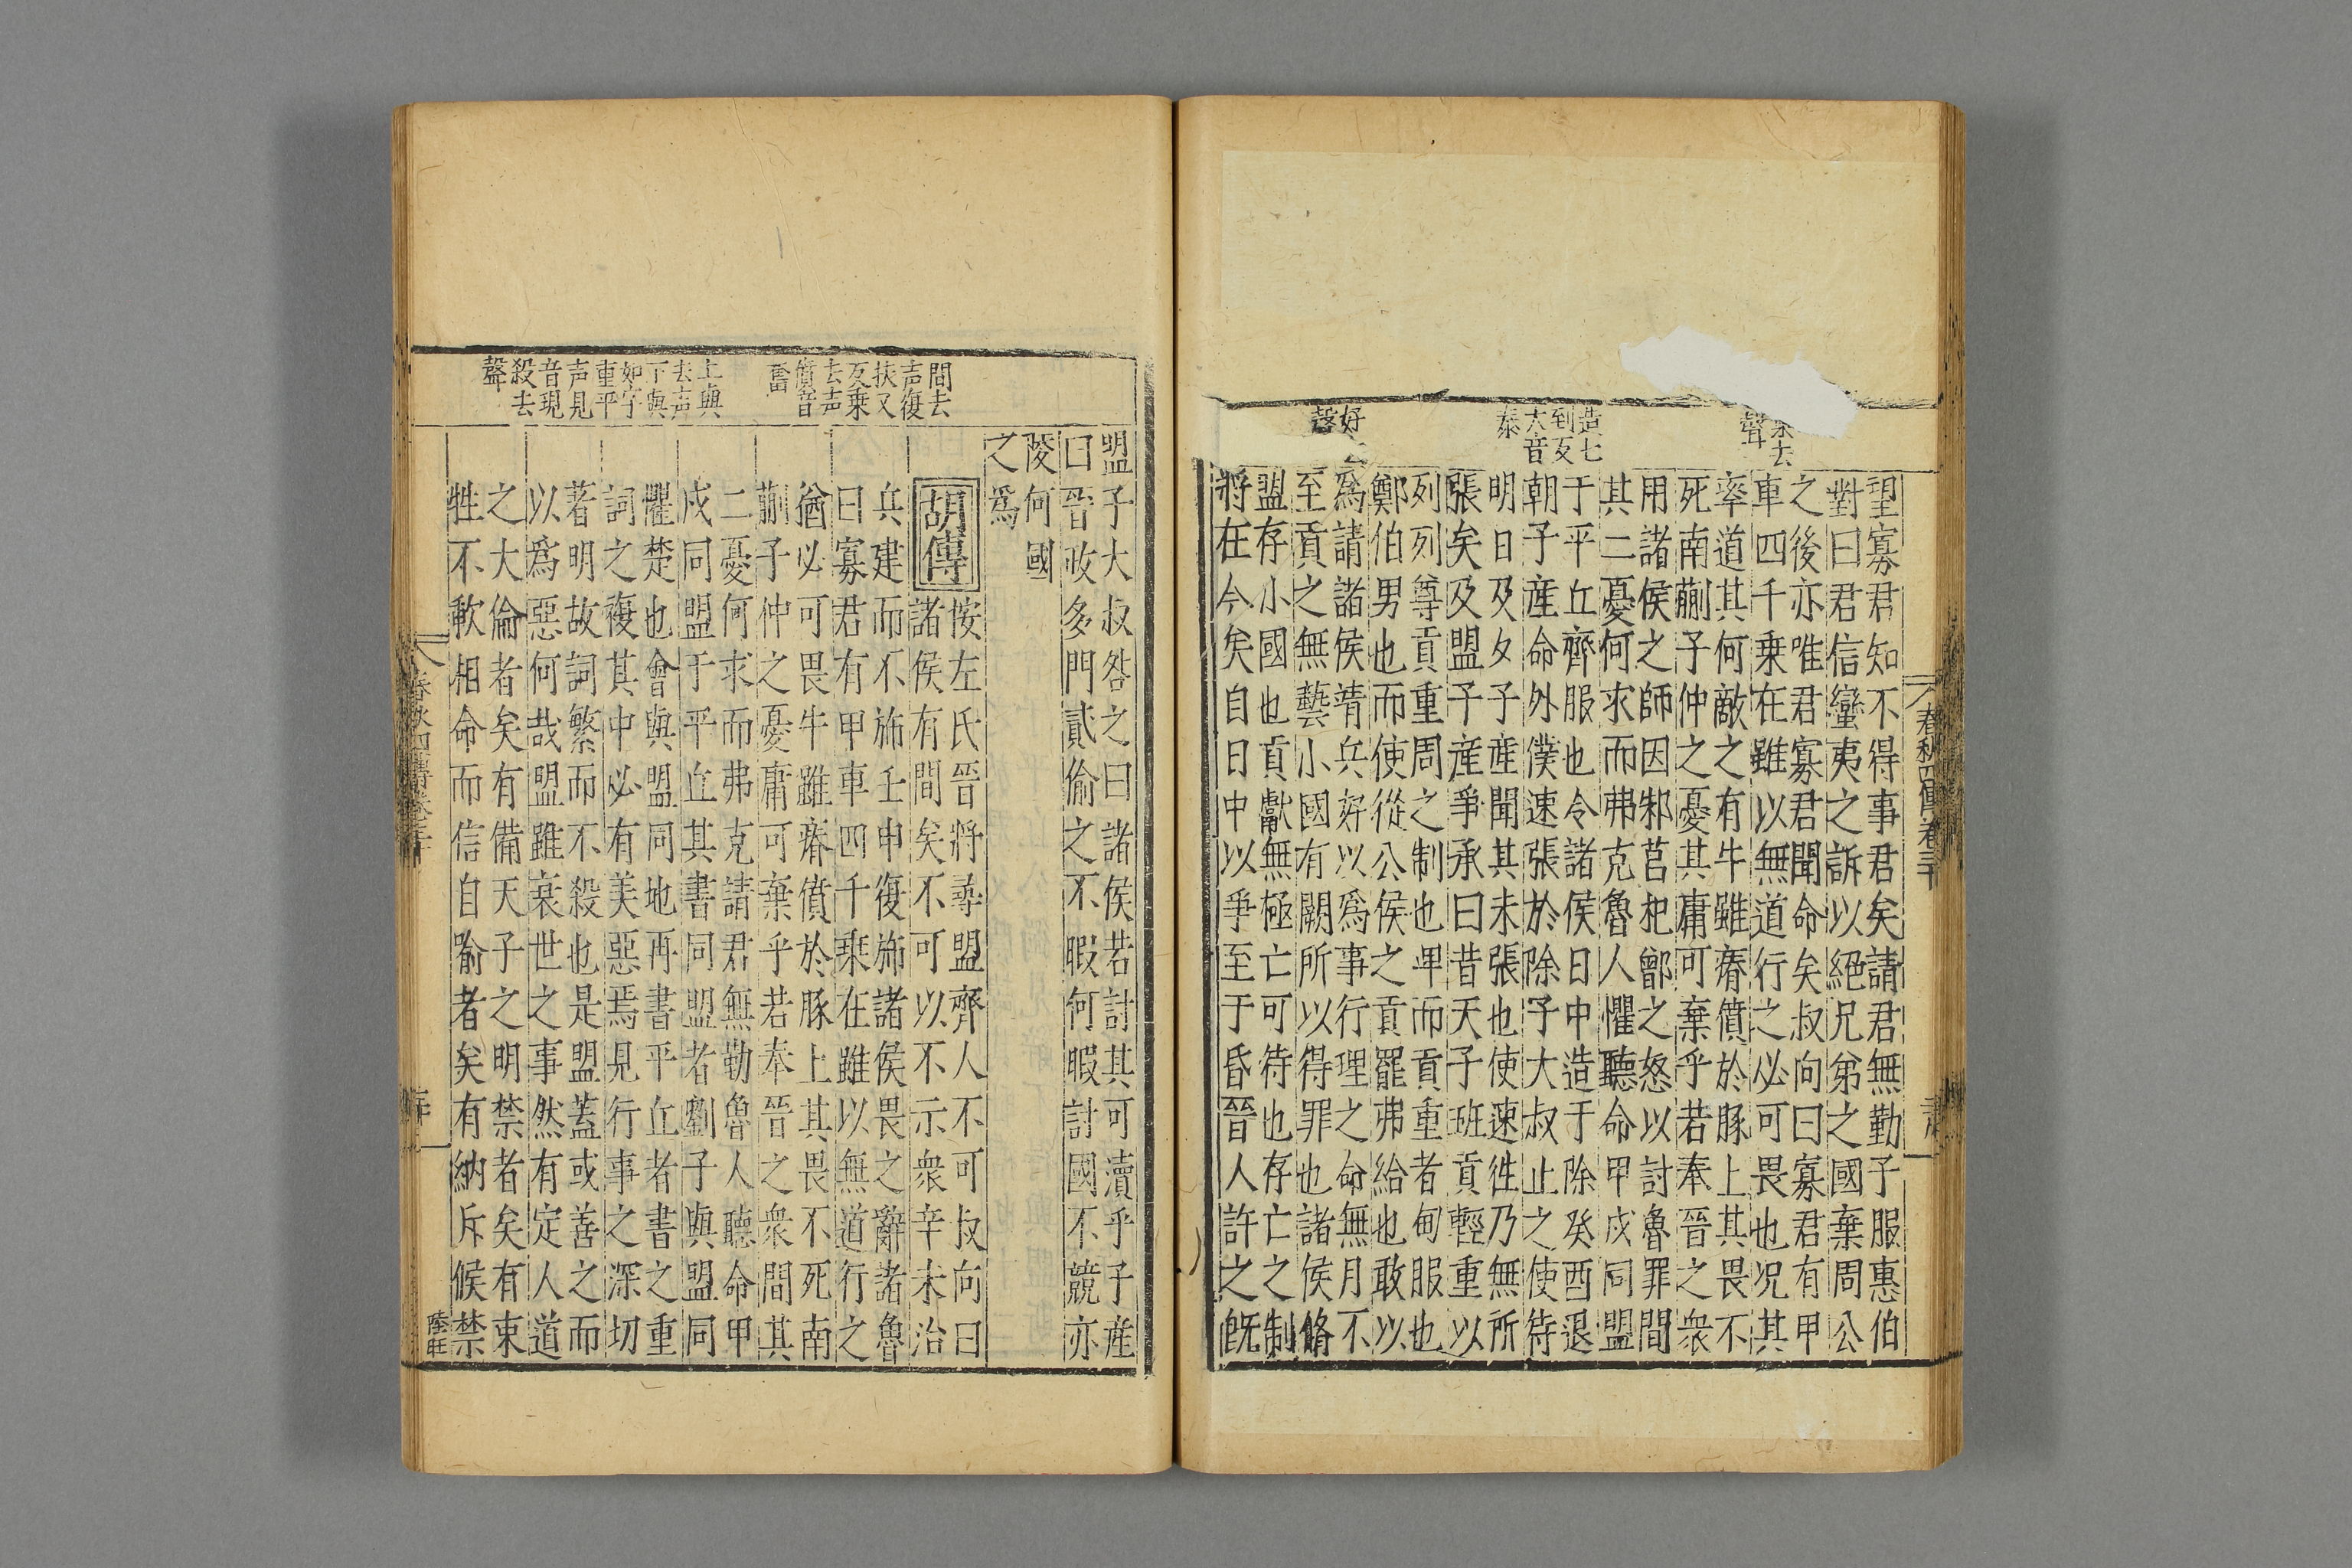 望寡君知不得事君矣請君無勤子服惠伯
對曰君信蠻夷之訴以絕兄弟之國棄周公
之後亦唯君寡君聞命矣叔向曰寡君有甲
車四千乗在雖以無道行之必可畏也况其
率道其何敵之有牛雖瘠僨於豚上其畏不
死南蒯子仲之憂其庸可棄乎若奉晉之衆
用諸侯之師因邾莒杞鄫之怒以討魯罪間
其二憂何求而弗克魯人懼聽命甲戌同盟
于平丘齊服也令諸侯日中造于除癸酉退
朝子產命外僕速張於除子大叔止之使待
明日及夕子產聞其未張也使速徃乃無所
張矣及盟子產爭承曰昔天子班貢輕重以
列列尊貢重周之制也卑而貢重者甸服也
鄭伯男也而使從公侯之貢罷弗給也敢以
爲請諸侯靖兵好以爲事行理之命無月不
至貢之無藝小國有闕所以得罪也諸侯脩
盟存小國也貢獻無極亡可待也存亡之制
將在今矣自日中以爭至于昏晉人許之旣
去
聲
造七
到反
大音
泰
好
聲
春秋四傳卷三十
盟子大叔咎之曰諸侯若討其可瀆乎子產
曰晉政多門貳偷之不暇何暇討國不競亦
陵何國
之爲
胡傳
按左氏晉將尋盟齊人不可叔向曰
諸侯有間矣不可以不示衆辛未治
兵建而不斾壬申復斾諸侯畏之辭諸魯
曰寡君有甲車四千乗在雖以無道行之
猶必可畏牛雖瘠僨於豚上其畏不死南
蒯子仲之憂庸可棄乎若奉晉之衆間其
二憂何求而弗克請君無勤魯人聽命甲
戌同盟于平丘其書同盟者劉子與盟同
懼楚也會與盟同地再書平丘者書之重
詞之複其中必有美惡焉見行事之深切
著明故詞繁而不殺也是盟蓋或善之而
以爲惡何哉盟雖衰世之事然有定人道
之大倫者矣有備天子之明禁者矣有束
牲不歃相命而信自喻者矣有納斥候禁
間去
声復
扶又
反乗
去声
僨音
奮
上與
去声
下與
如字
重平
声見
音現
殺去
聲